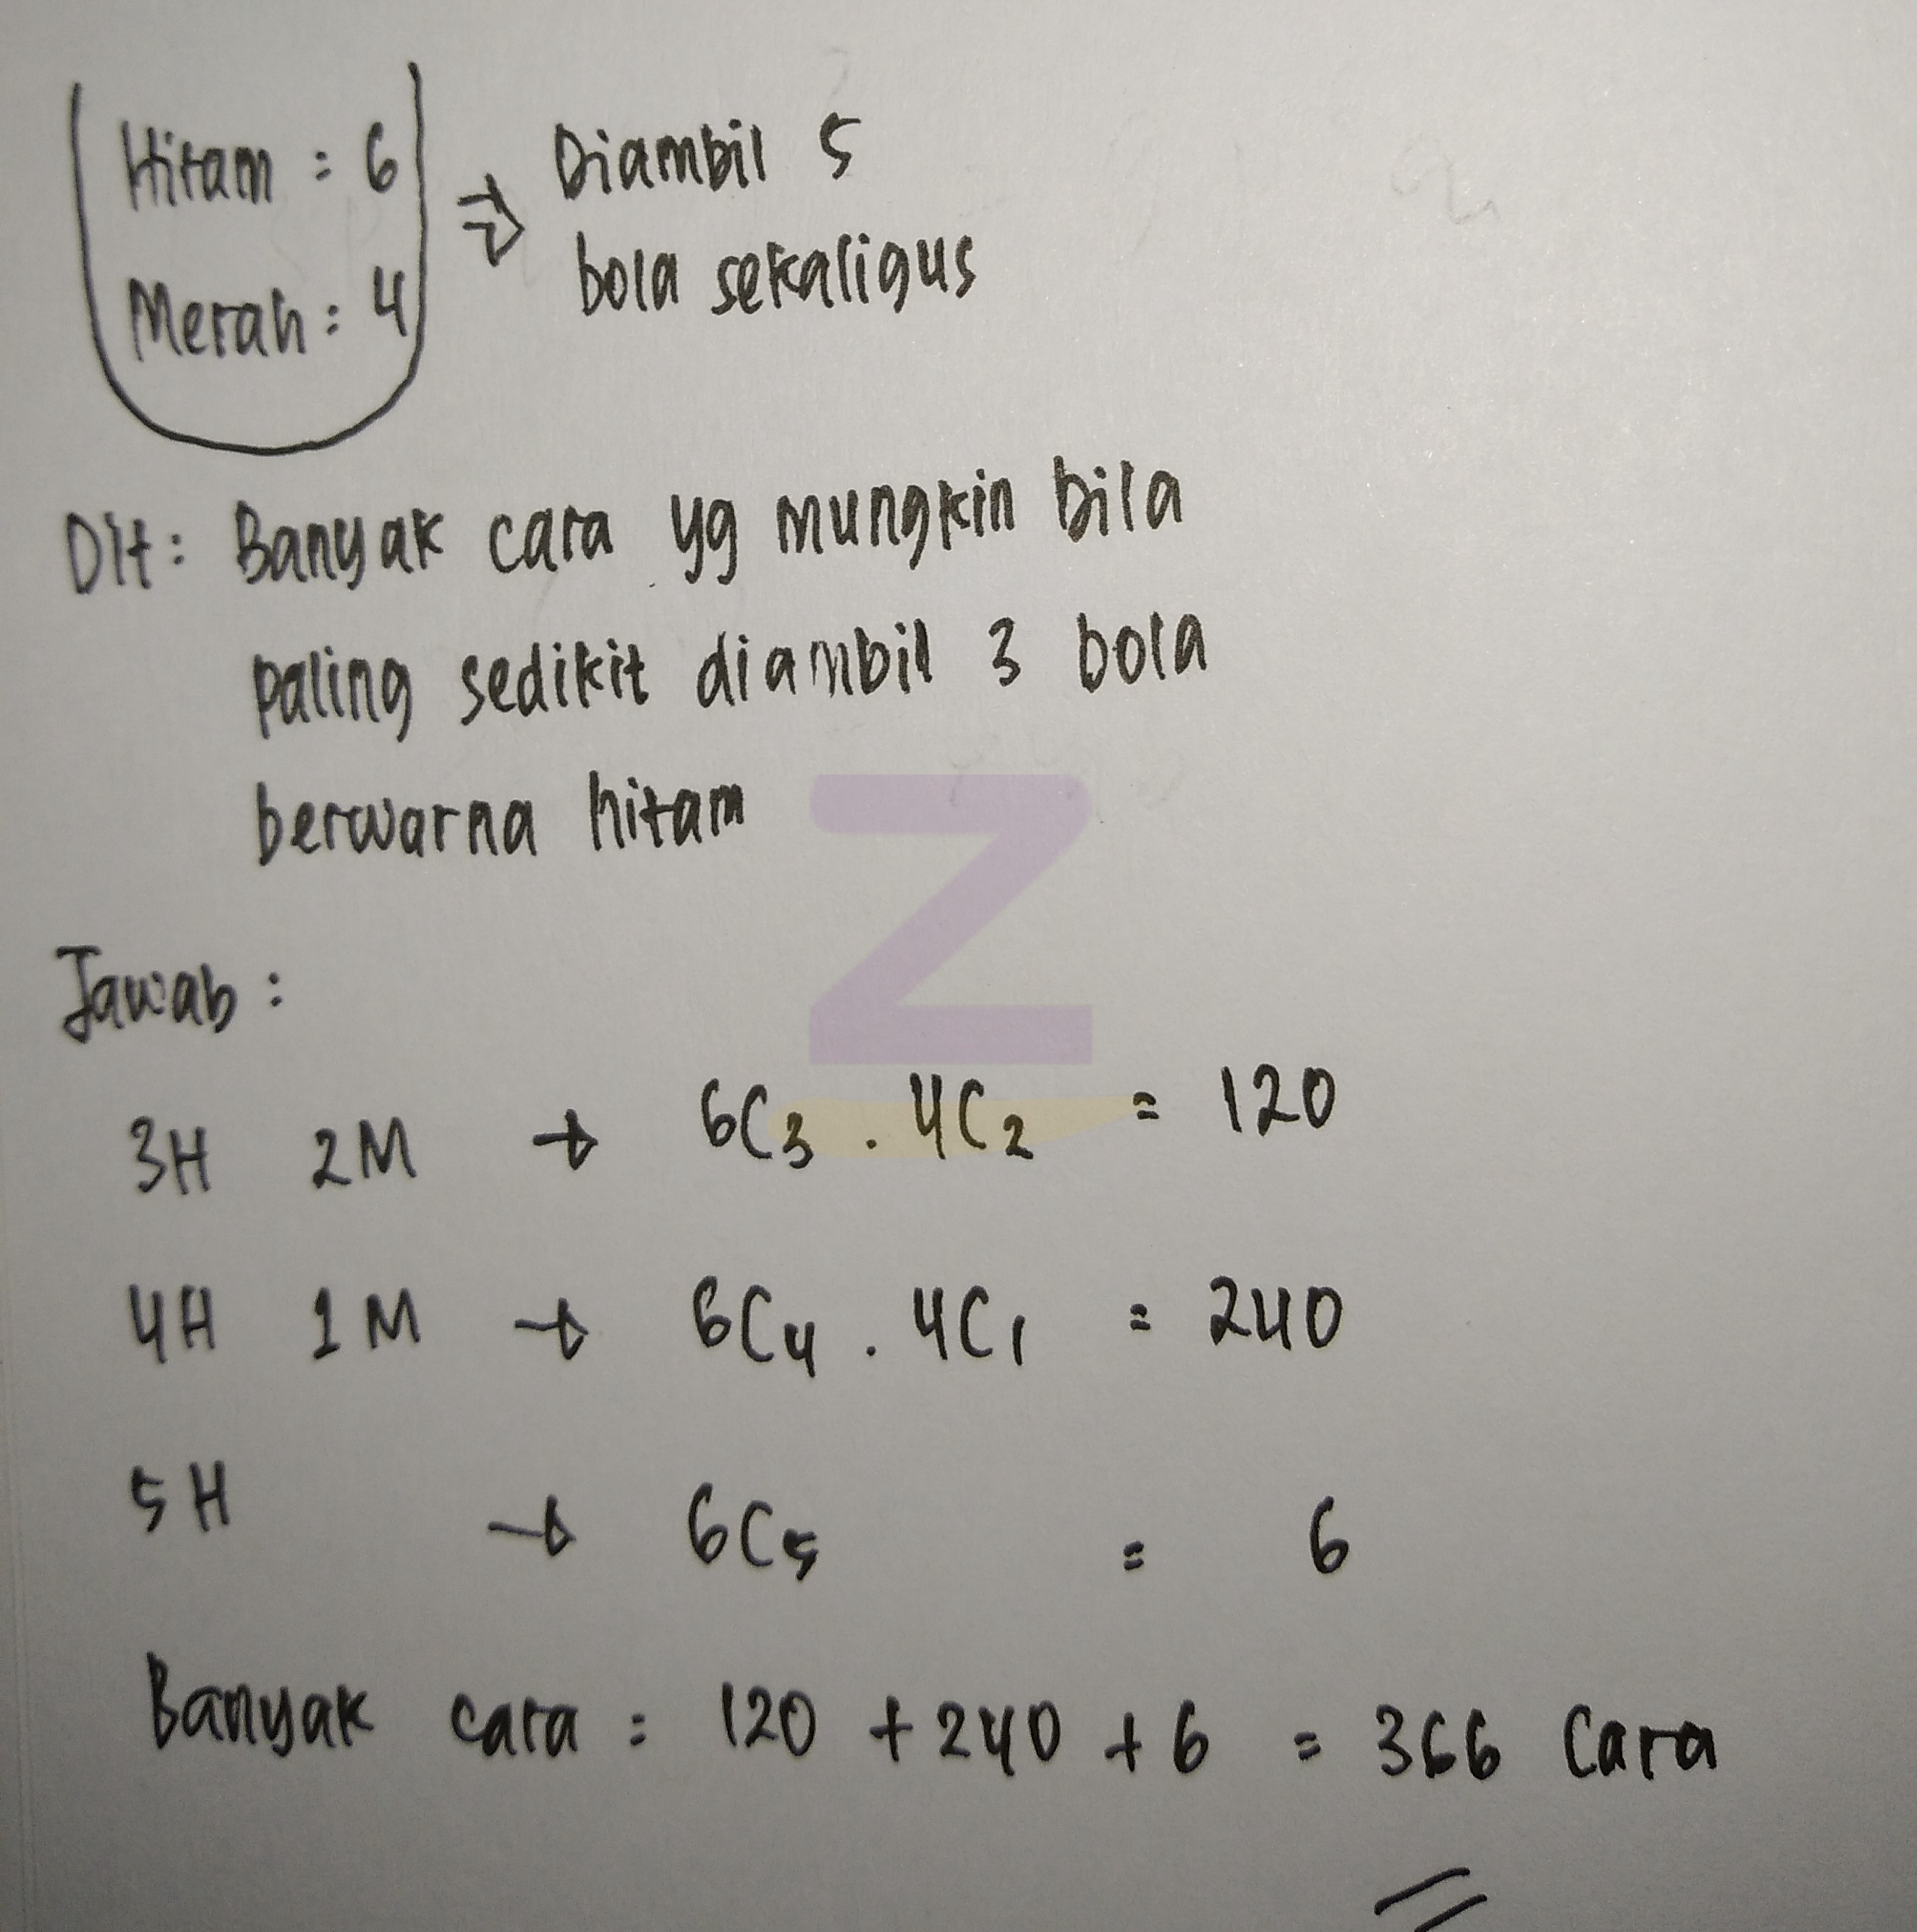 Hitam = 6
Merah = 4
⇒ Diambil 5
bola sekaligus
Dit: Banyak cara yg mungkin bila
paling sedikit diambil 3 bola
berwarna hitam
Jawab :
3H 2M → 6C3 . 4C2 = 120
4H 1M → 6C4 . 4C1 = 240
5H → 6C5 = 6
Banyak cara = 120 + 240 + 6 = 366 Cara
Z